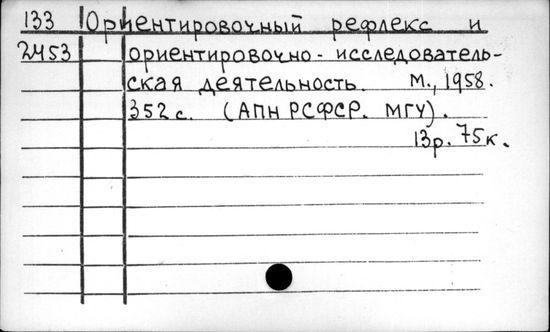 133 Ориентировочный рефлекс и
2453 ориентировочно-исследователь-
ская деятельность. М., 1958.
352 с. (АПН РСФСР. МГУ).
13р. 75к.